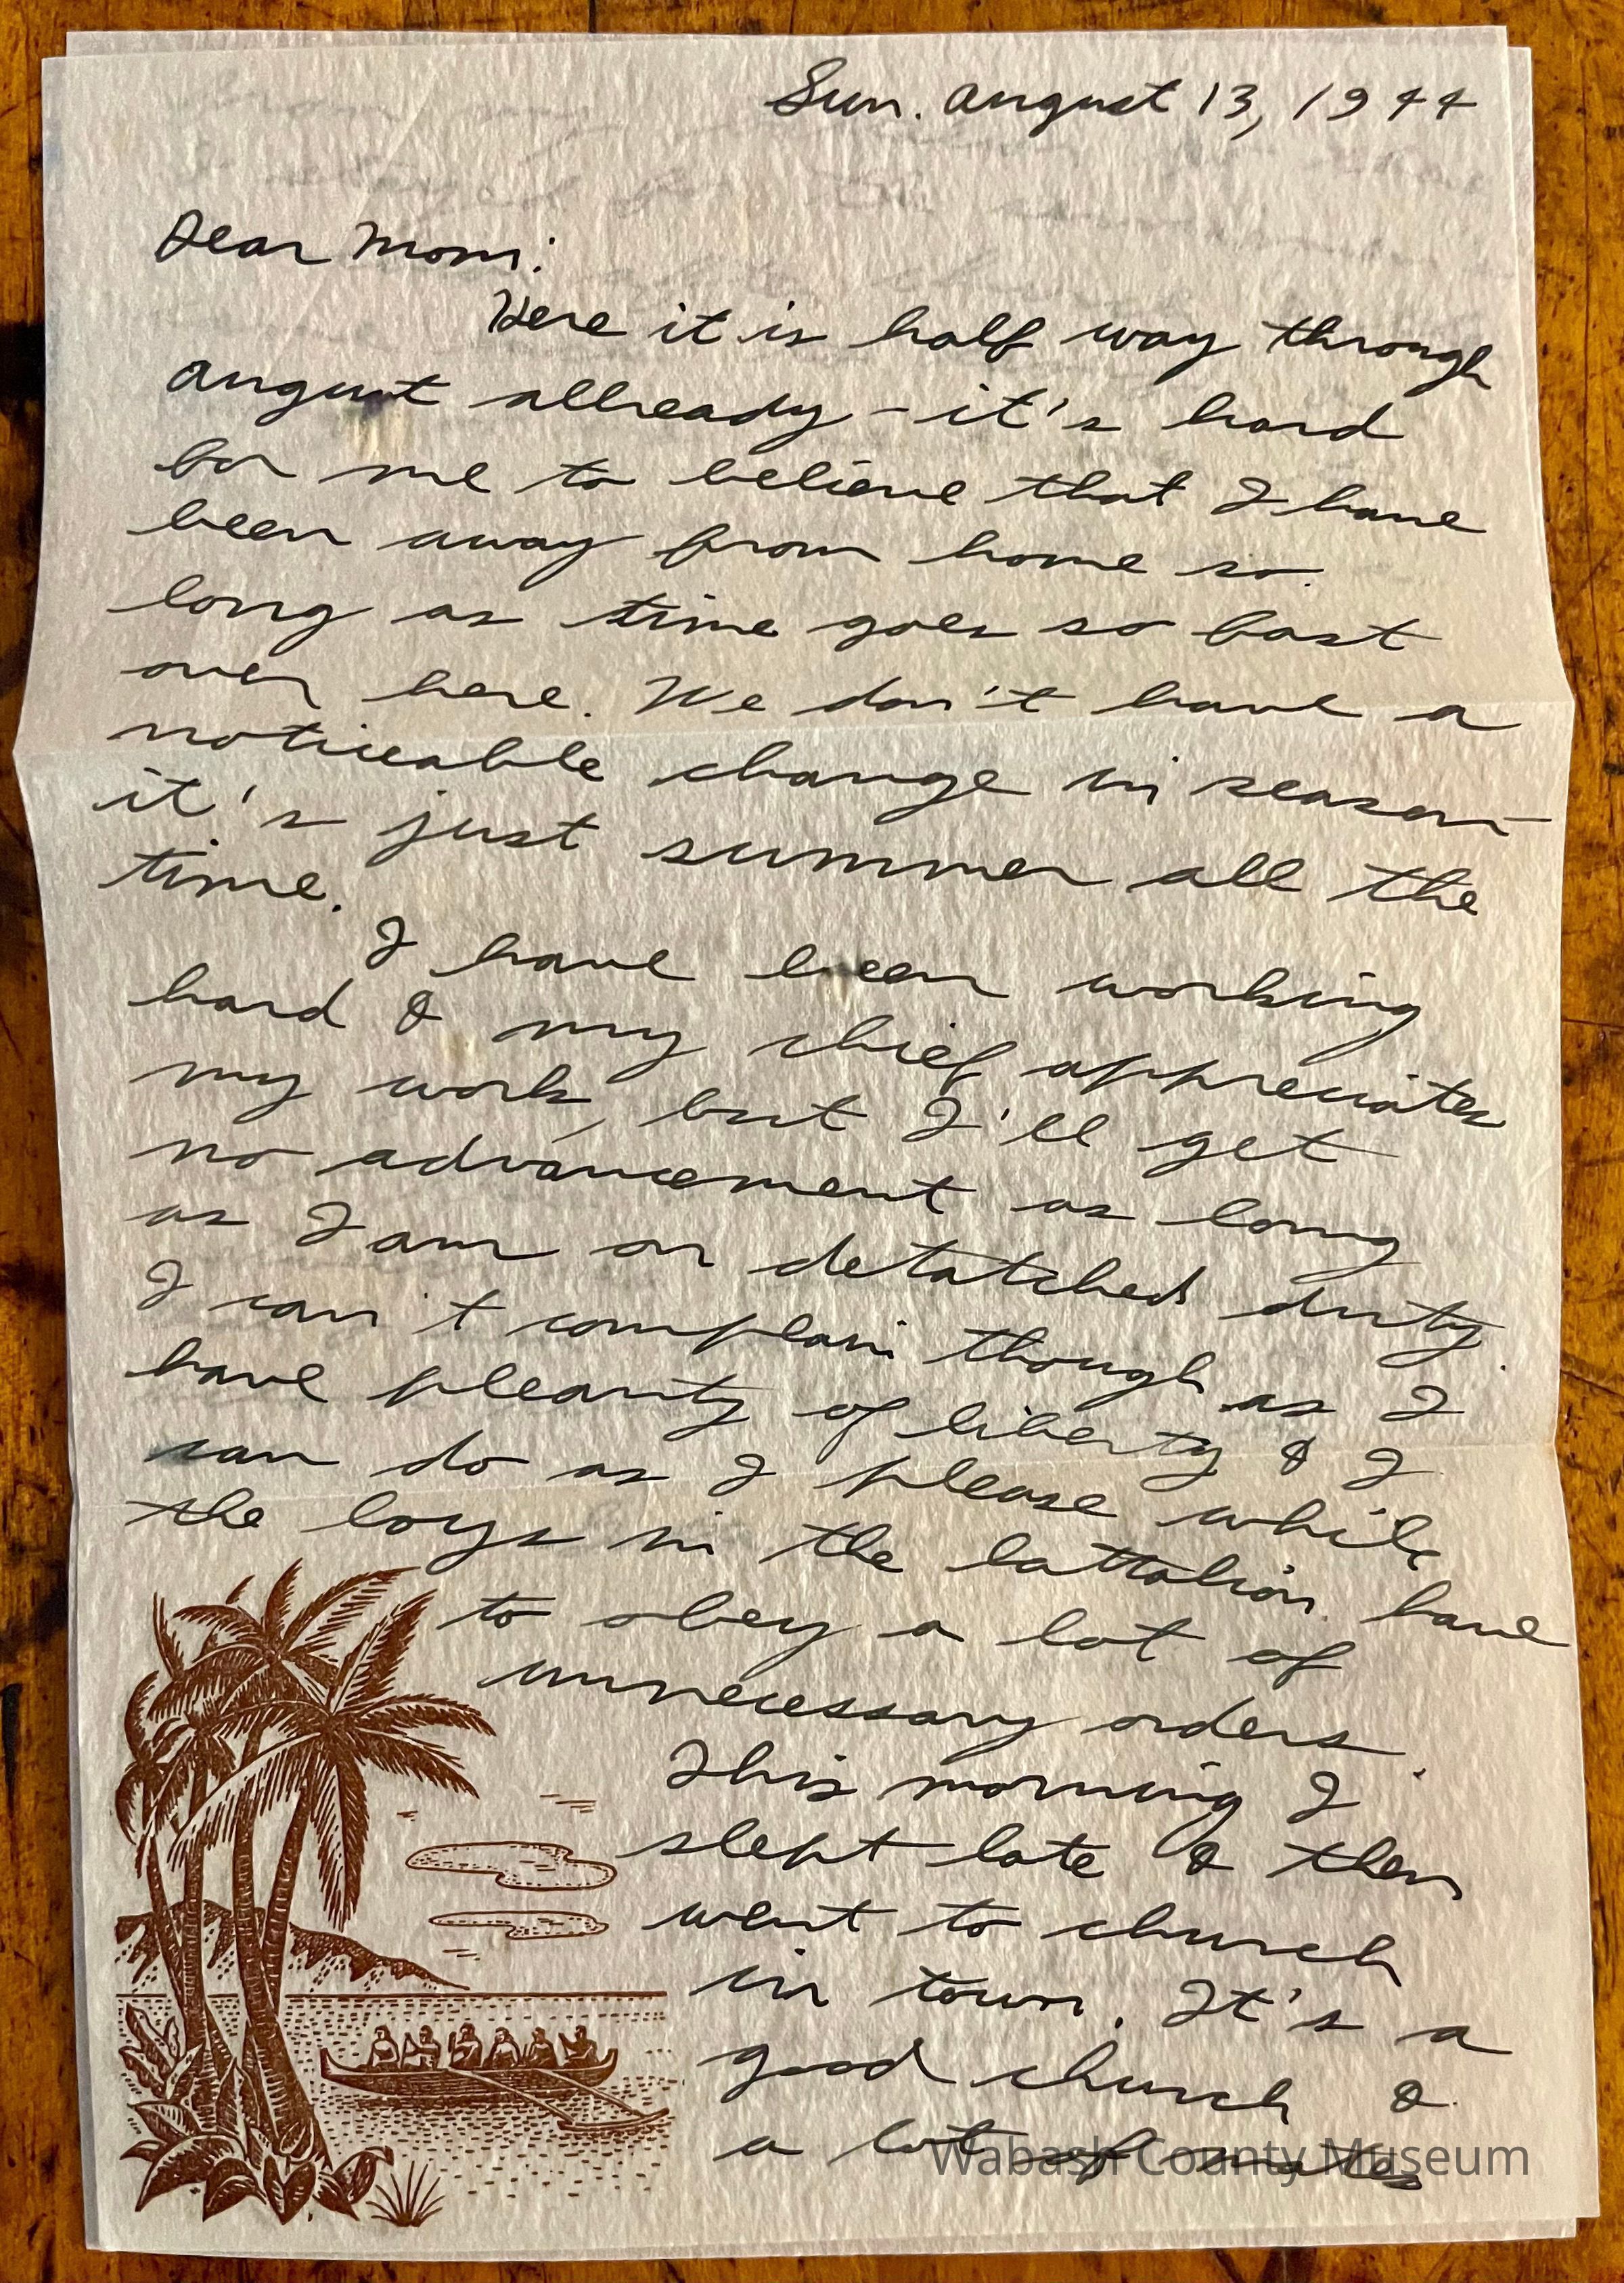 Sun. August 13, 1944
Dear Mom:
Here it is half way through
August allready - it's hard
for me to believe that I have
been away from home so
long as time goes so fast
over here. We don't have a
noticeable change in season
it's just summer all the
time.
I have been working
hard & my chief appreciates
my work, but I'll get
no advancement as long
as I am on detatched duty.
I can't complain though as I
have pleanty of liberty & I
can do as I please while
the boys in the battalion have
to obey a lot of
unnecessary orders.
This morning I
slept late & then
went to church
in town. It's a
good church &
a lot of
Wabash County Museum